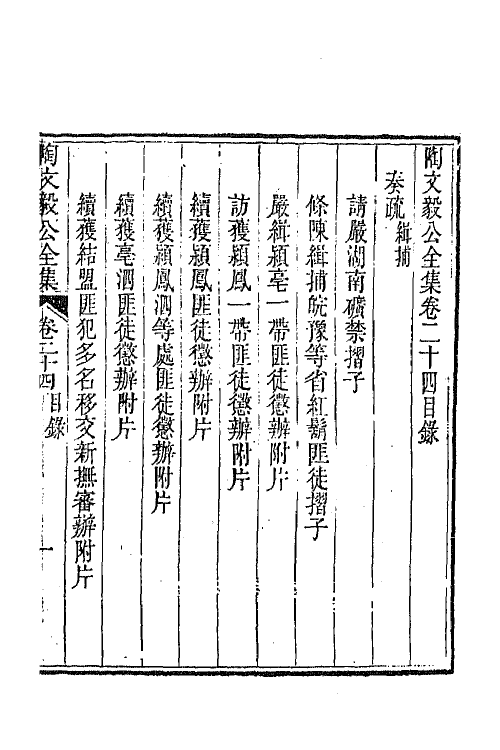 陶文毅公全集卷二十四目錄
奏疏 緝捕
請嚴湖南礦禁摺子
條陳緝捕皖豫等省紅鬍匪徒摺子
嚴緝潁亳一帶匪徒懲辦附片
訪獲潁鳳一帶匪徒懲辦附片
續獲潁鳳匪徒懲辦附片
續獲潁鳳泗等處匪徒懲辦附片
續獲亳泗匪徒懲辦附片
續獲結盟匪犯多名移交新撫審辦附片
陶文毅公全集 卷二十四 目錄 一